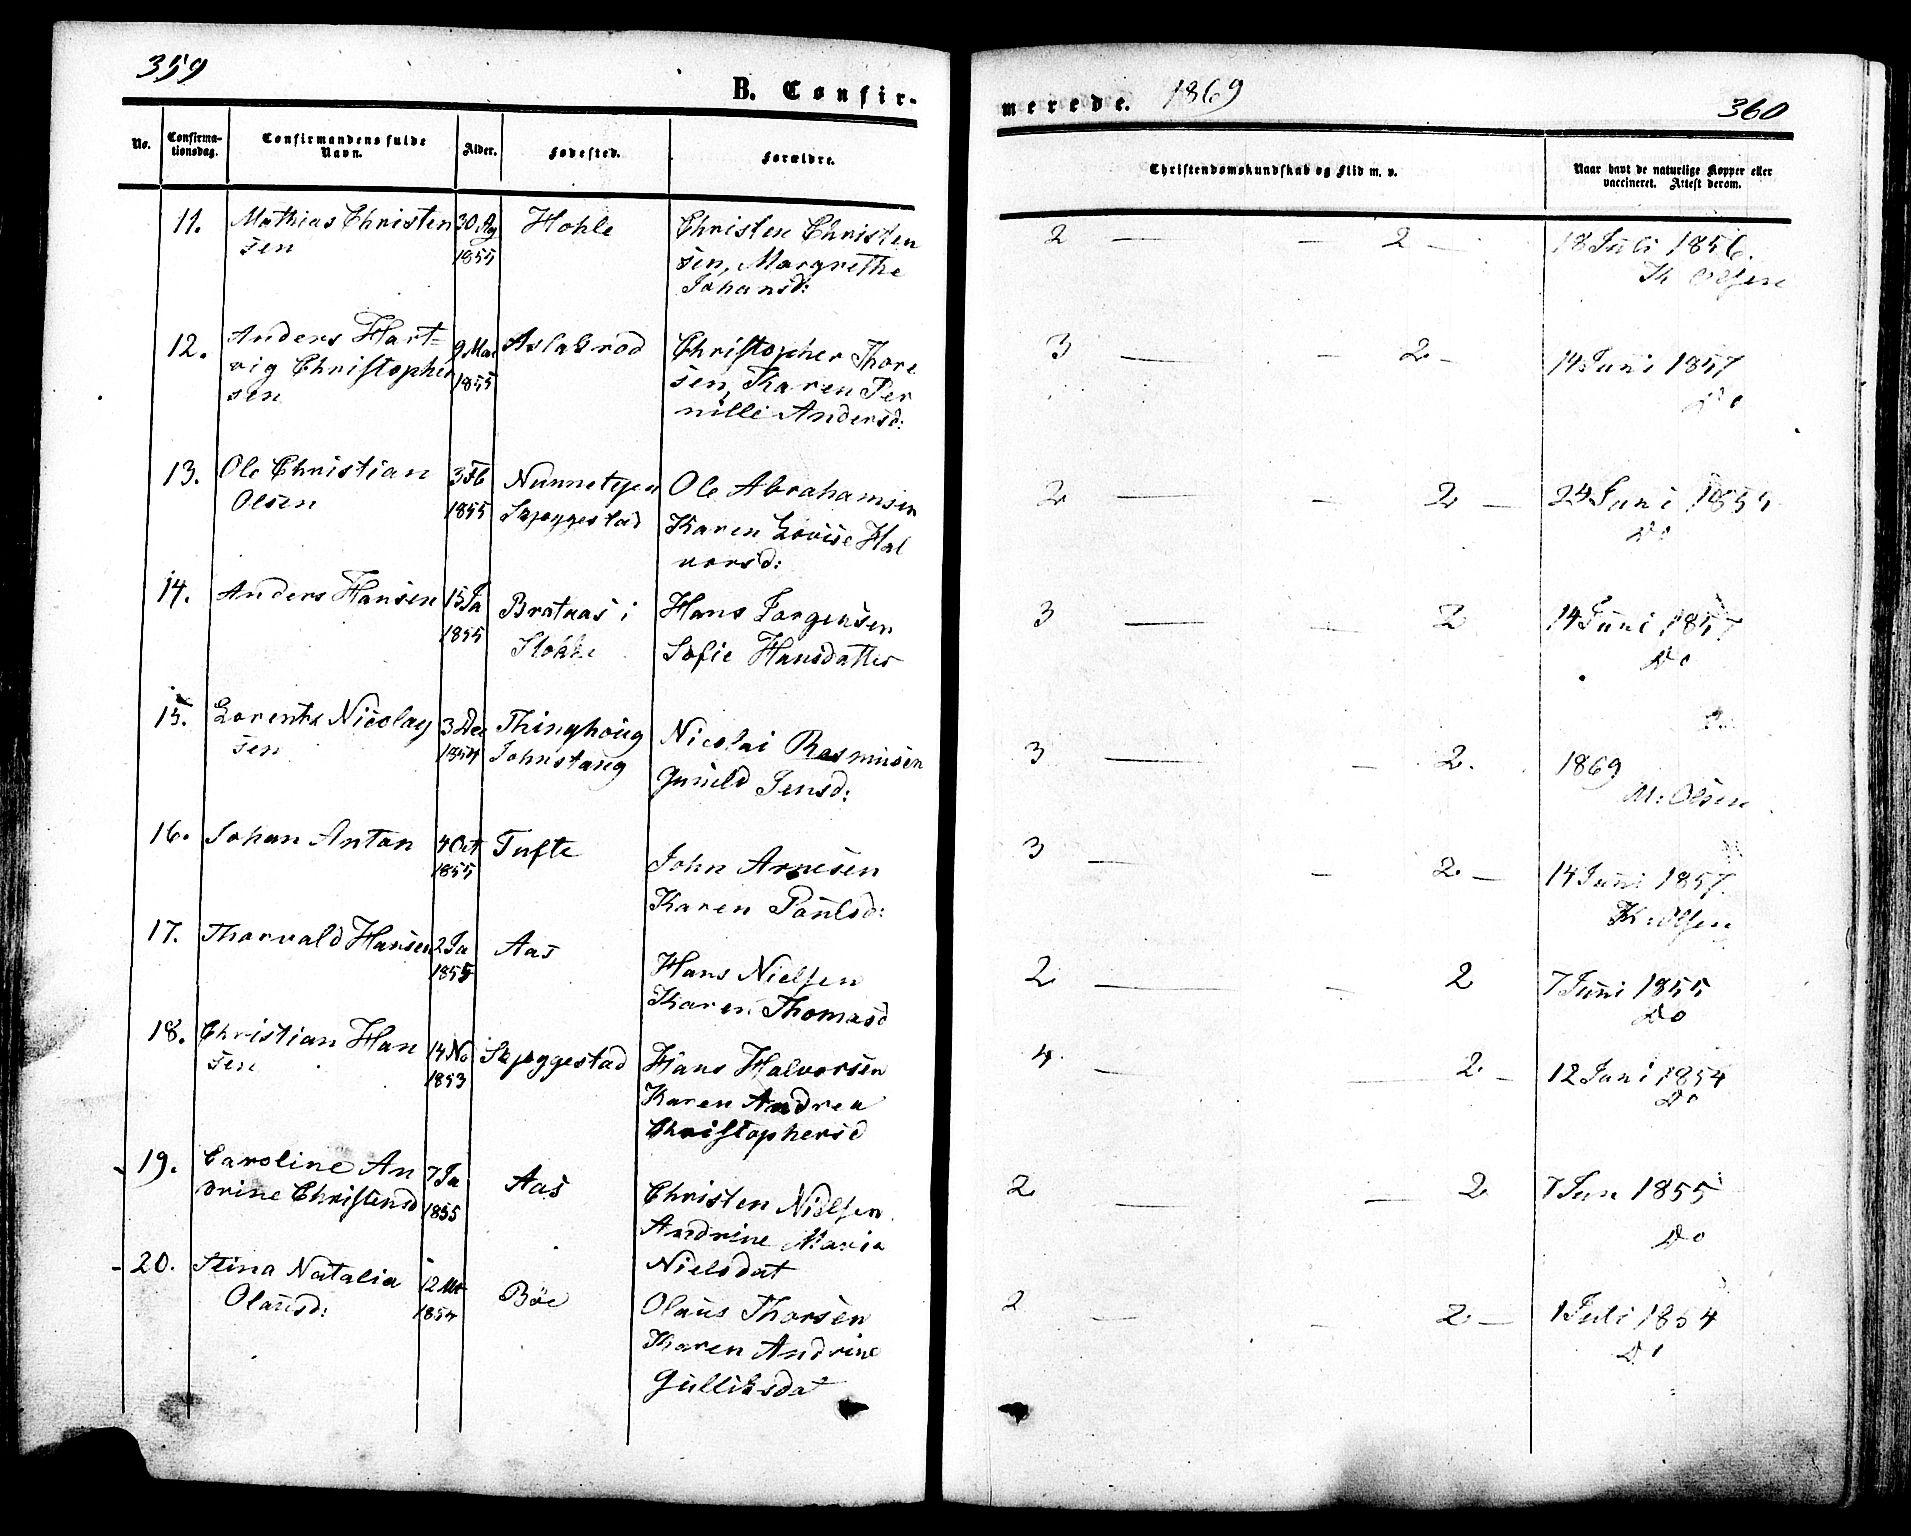 359
B. Confir-
No.
Confirma-
tionsdag.
Confirmandens fulde
Navn.
Alder.
Fødested.
Forældre.
11.
Mathias Christen
sen
30 Ag
1855
Hohle
Christen Christen
sen, Margrethe
Johansd:
12.
Anders Hart-
vig Christopher
sen
9 Mai
1855
Aslakrød
Christopher Thore
sen, Karen Per
nille Andersd:
13.
Ole Christian
Olsen
3 Fb
1855
Nunnetejen
Skjeggestad
Ole Abrahamsen
Karen Lovise Hal
vorsd:
14.
Anders Hansen
15 Ja
1855
Brataas i
Stokke
Hans Jørgensen
Sofie Hansdatter
15.
Lorents Nicolay
sen
3 Dec
1854
Thinghoug
Johnstang
Nicolai Rasmusen
Gunild Jensd:
16.
Johan Anton
4 Oct
1855
Tufte
John Arnesen
Karen Poulsd:
17.
Thorvald Hansen
2 Ja
1855
Aas
Hans Nielsen
Karen Thomasd
18.
Christian Han
sen
14 No
1853
Skjeggestad
Hans Halvorsen
Karen Andrea
Christophersd
19.
Caroline An
drine Christensd
7 Ja
1855
Aas
Christen Nielsen
Andrine Maria
Nielsdat
20.
Stina Natalia
Olausd:
12 Mr
1854
Bøe
Olaus Thorsen
Karen Andrine
Gulliksdat
merede. 1869
360
Christendomskundskab og Flid m. v.
Naar havt de naturlige Kopper eller
vaccineret. Attest derom.
2 — — 2 —
18 Juli 1856.
Th Olsen
3 — — 2 —
14 Juni 1857
Do
2 — — 2 —
24 Juni 1855
Do
3 — — 2
14 Juni 1857
Do
3 — — 2.
1869
M: Olsen
3 — — 2 —
14 Juni 1857.
Th: Olsen
2 — — 2
7 Juni 1855
Do
4 — — 2 —
12 Juni 1854
Do
2 — — 2
7 Jun 1855
Do
2 — — 2 —
1 Juli 1854
Do